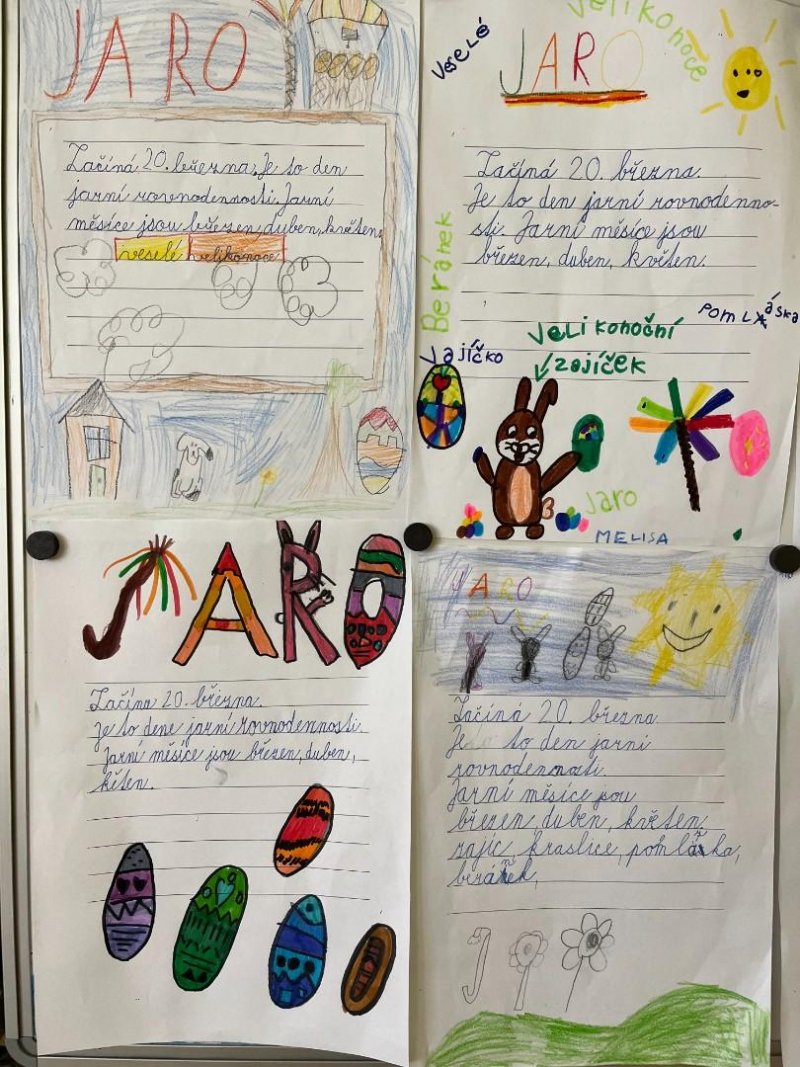 JARO
Začíná 20. března. Je to den
jarní rovnodennosti. Jarní
měsíce jsou březen, duben, květen,
veselé velikonoce
Veselé
Velikonoce
JARO
Začíná 20. března.
Je to den jarní rovnodenno-
sti. Jarní měsíce jsou
březen, duben, květen.
Beránek
POMLÁSKA
Vajíčko
Velikonoční
zajíček
Jaro
MELISA
JARO
Začína 20. března.
je to dene jarní rovnodennosti.
Jarní měsíce jsou březen, duben,
kěten.
JARO
Začíná 20. března
Je to den jarni
rovnodennosti.
Jarní měsíce jsou
březen, duben, květen
zajíc kraslice, pomlázka,
beránek,
J